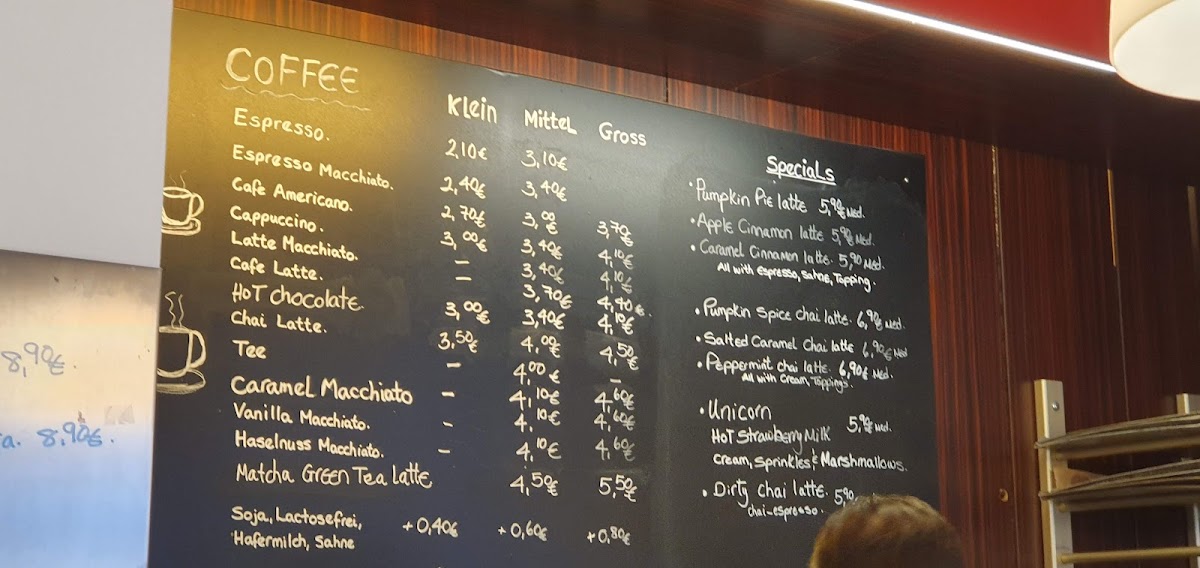 COFFEE
Klein Mittel Gross
Espresso. 2,10€ 3,10€
Espresso Macchiato. 2,40€ 3,40€
Cafe Americano. 2,70€ 3,00€ 3,70€
Cappuccino. 3,00€ 3,40€ 4,10€
Latte Macchiato. – 3,40€ 4,10€
Cafe Latte. – 3,70€ 4,40€.
Hot chocolate. 3,00€ 3,40€ 4,10€
Chai Latte. 3,50€ 4,00€ 4,50€
Tee – 4,00€ –
Caramel Macchiato – 4,10€ 4,60€
Vanilla Macchiato. – 4,10€ 4,60€
Haselnuss Macchiato. – 4,10€ 4,60€
Matcha Green Tea Latte 4,50€ 5,50€
Soja, Lactosefrei, +0,40€ +0,60€ +0,80€
Hafermilch, Sahne
Specials
• Pumpkin Pie latte 5,90€ Med.
• Apple Cinnamon latte 5,90€ Med.
• Caramel Cinnamon latte. 5,90 Med.
All with espresso, Sahne, Topping.
• Pumpkin Spice chai latte. 6,90€ Med.
• Salted Caramel Chai latte 6,90€ Med
• Peppermint chai latte. 6,90€ Med.
All with Cream, Toppings.
• Unicorn 5,90€ Med.
Hot Strawberry Milk
Cream, Sprinkles & Marshmallows.
• Dirty Chai latte. 5,90
chai-espresso.
8,90€.
8,90€.